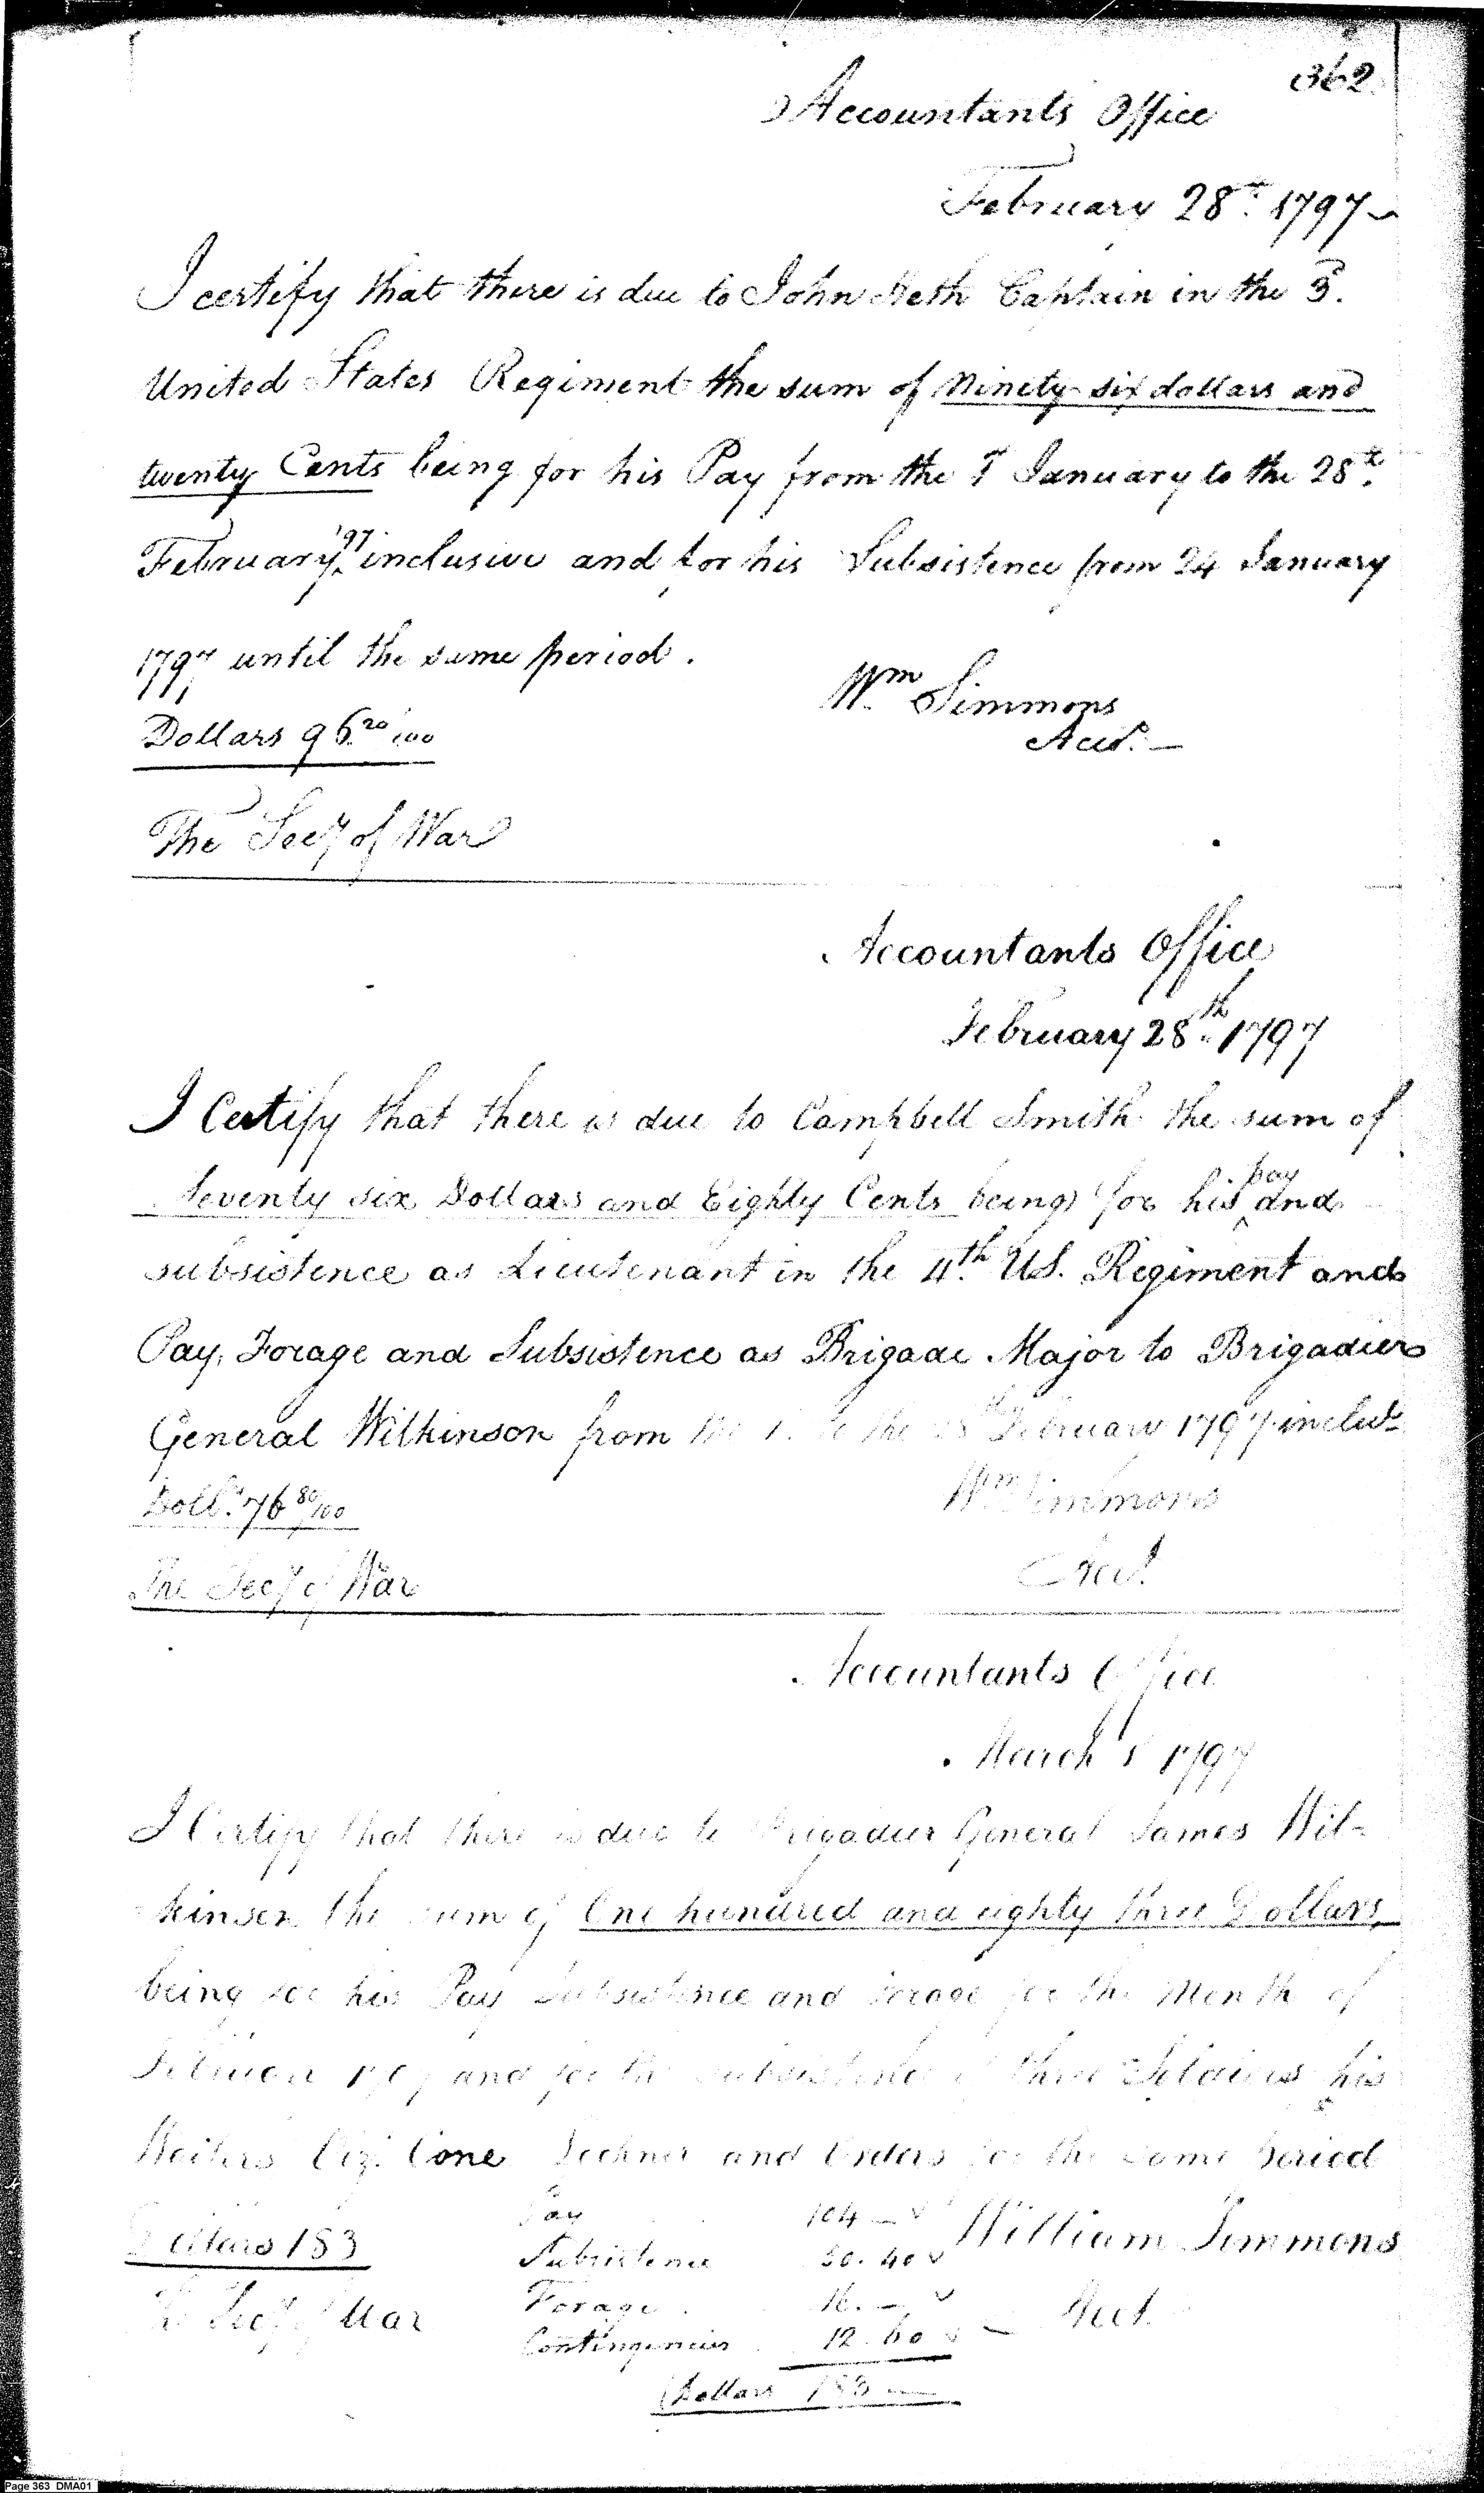 362
Accountants Office
February 28th 1797
I certify that there is due to John Heth Captain in the 3d
United States Regiment the sum of Ninety six dollars and
twenty Cents being for his Pay from the 1st January to the 28th
February '97 inclusive and for his Subsistence from 24 January
1797 until the same period.
Wm Simmons
Dollars 96 20/100
Acct.
The Secy of War
Accountants Office
February 28th 1797
I Certify that there is due to Campbell Smith the sum of
Seventy six Dollars and Eighty Cents being for his pay and
subsistence as Lieutenant in the 4th US. Regiment and
Pay, Forage and Subsistence as Brigade Major to Brigadier
General Wilkinson from the 1. to the 28th February 1797 inclus
Wm Simmons
Dolls. 76 80/100
Acct.
The Secy of War
Accountants Office
March 1 1797
I Certify that there is due to Brigadier General James Wil-
kinson the sum of One hundred and eighty three Dollars,
being for his Pay Subsistence and forage for the Month of
February 1797 and for the subsistence of three Soldiers his
Waiters Viz. Cone and for the same period
Pay 104 —
Dollars 183
William Simmons
Subsistence 50.40
Forage 16. —
The Secy of War
Acct.
Contingencies 12.60
Dollars 183 —
Page 363 DMA01